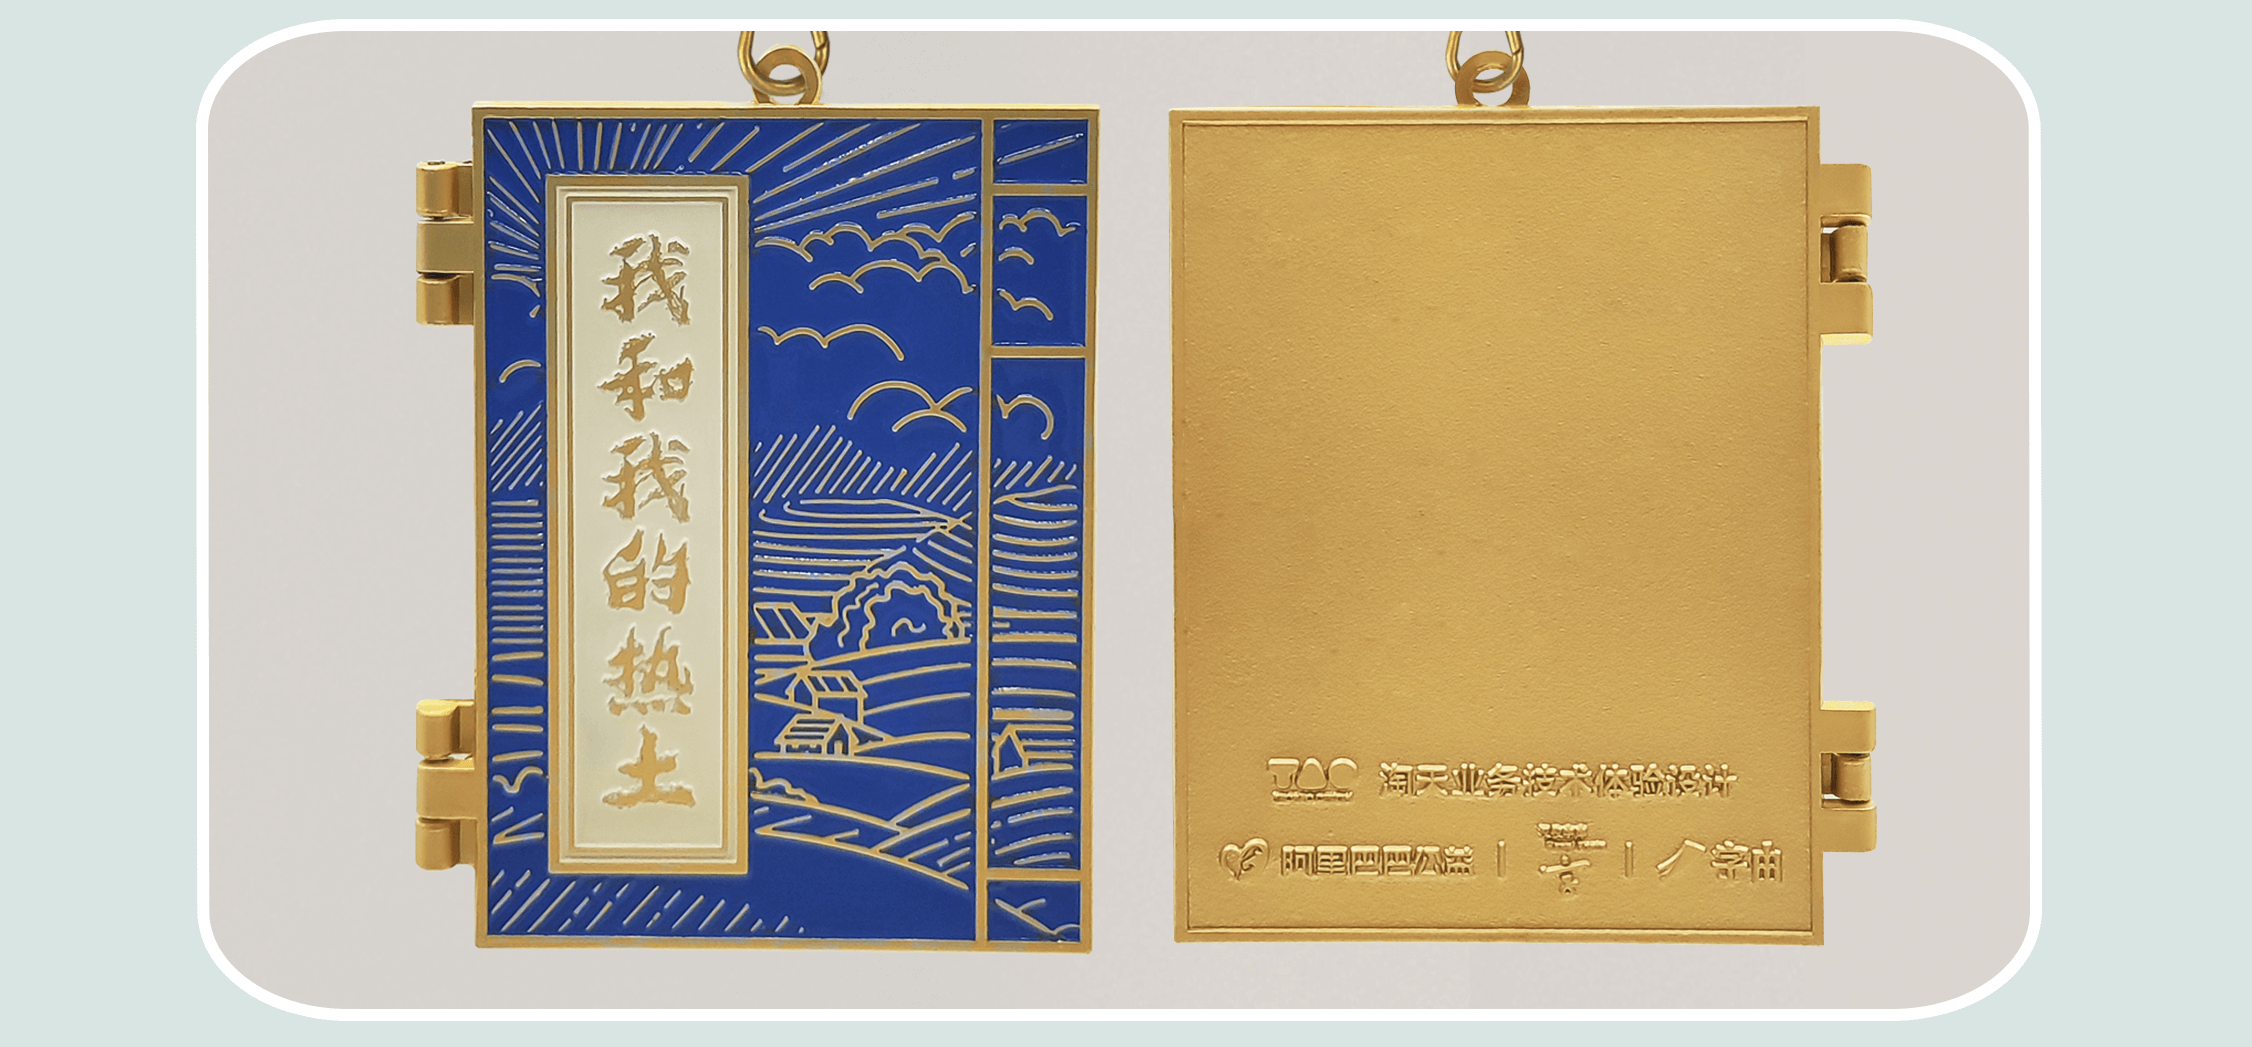 我和我的热土
TAC 淘天业务技术体验设计
阿里巴巴公益
字由